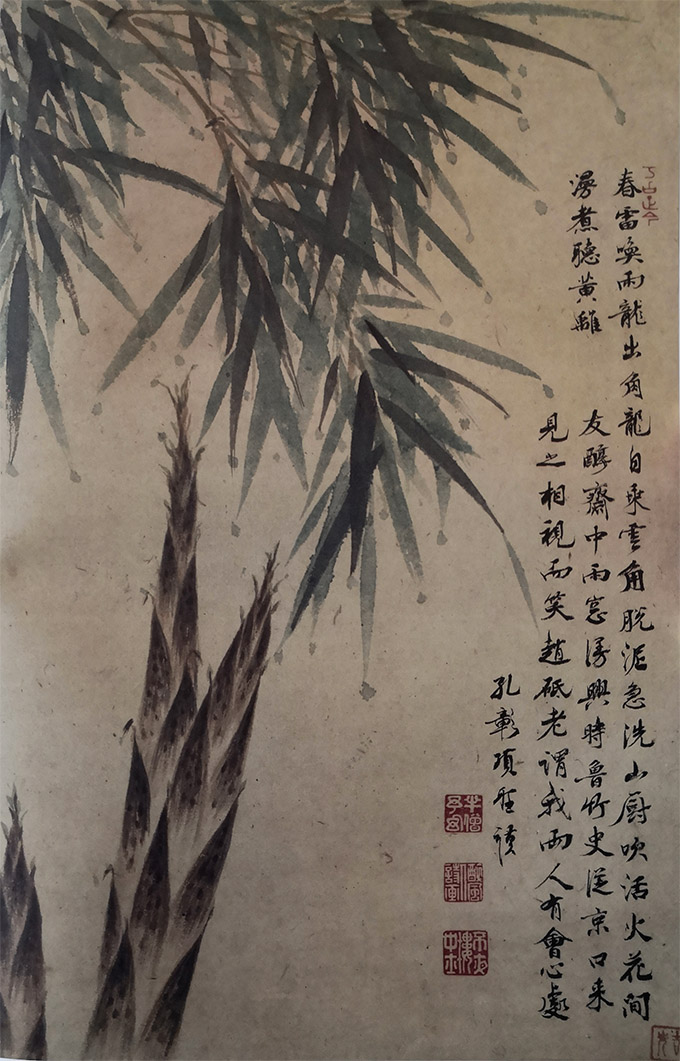 春雷喚雨龍出角龍自乘雲角脫泥急洗山厨吹活火花間
漫煮聽黄鸝
友醇齋中雨窓漫興時魯竹史從京口来
見之相視而笑趙砥老謂我兩人有會心處
孔彰項聖謨